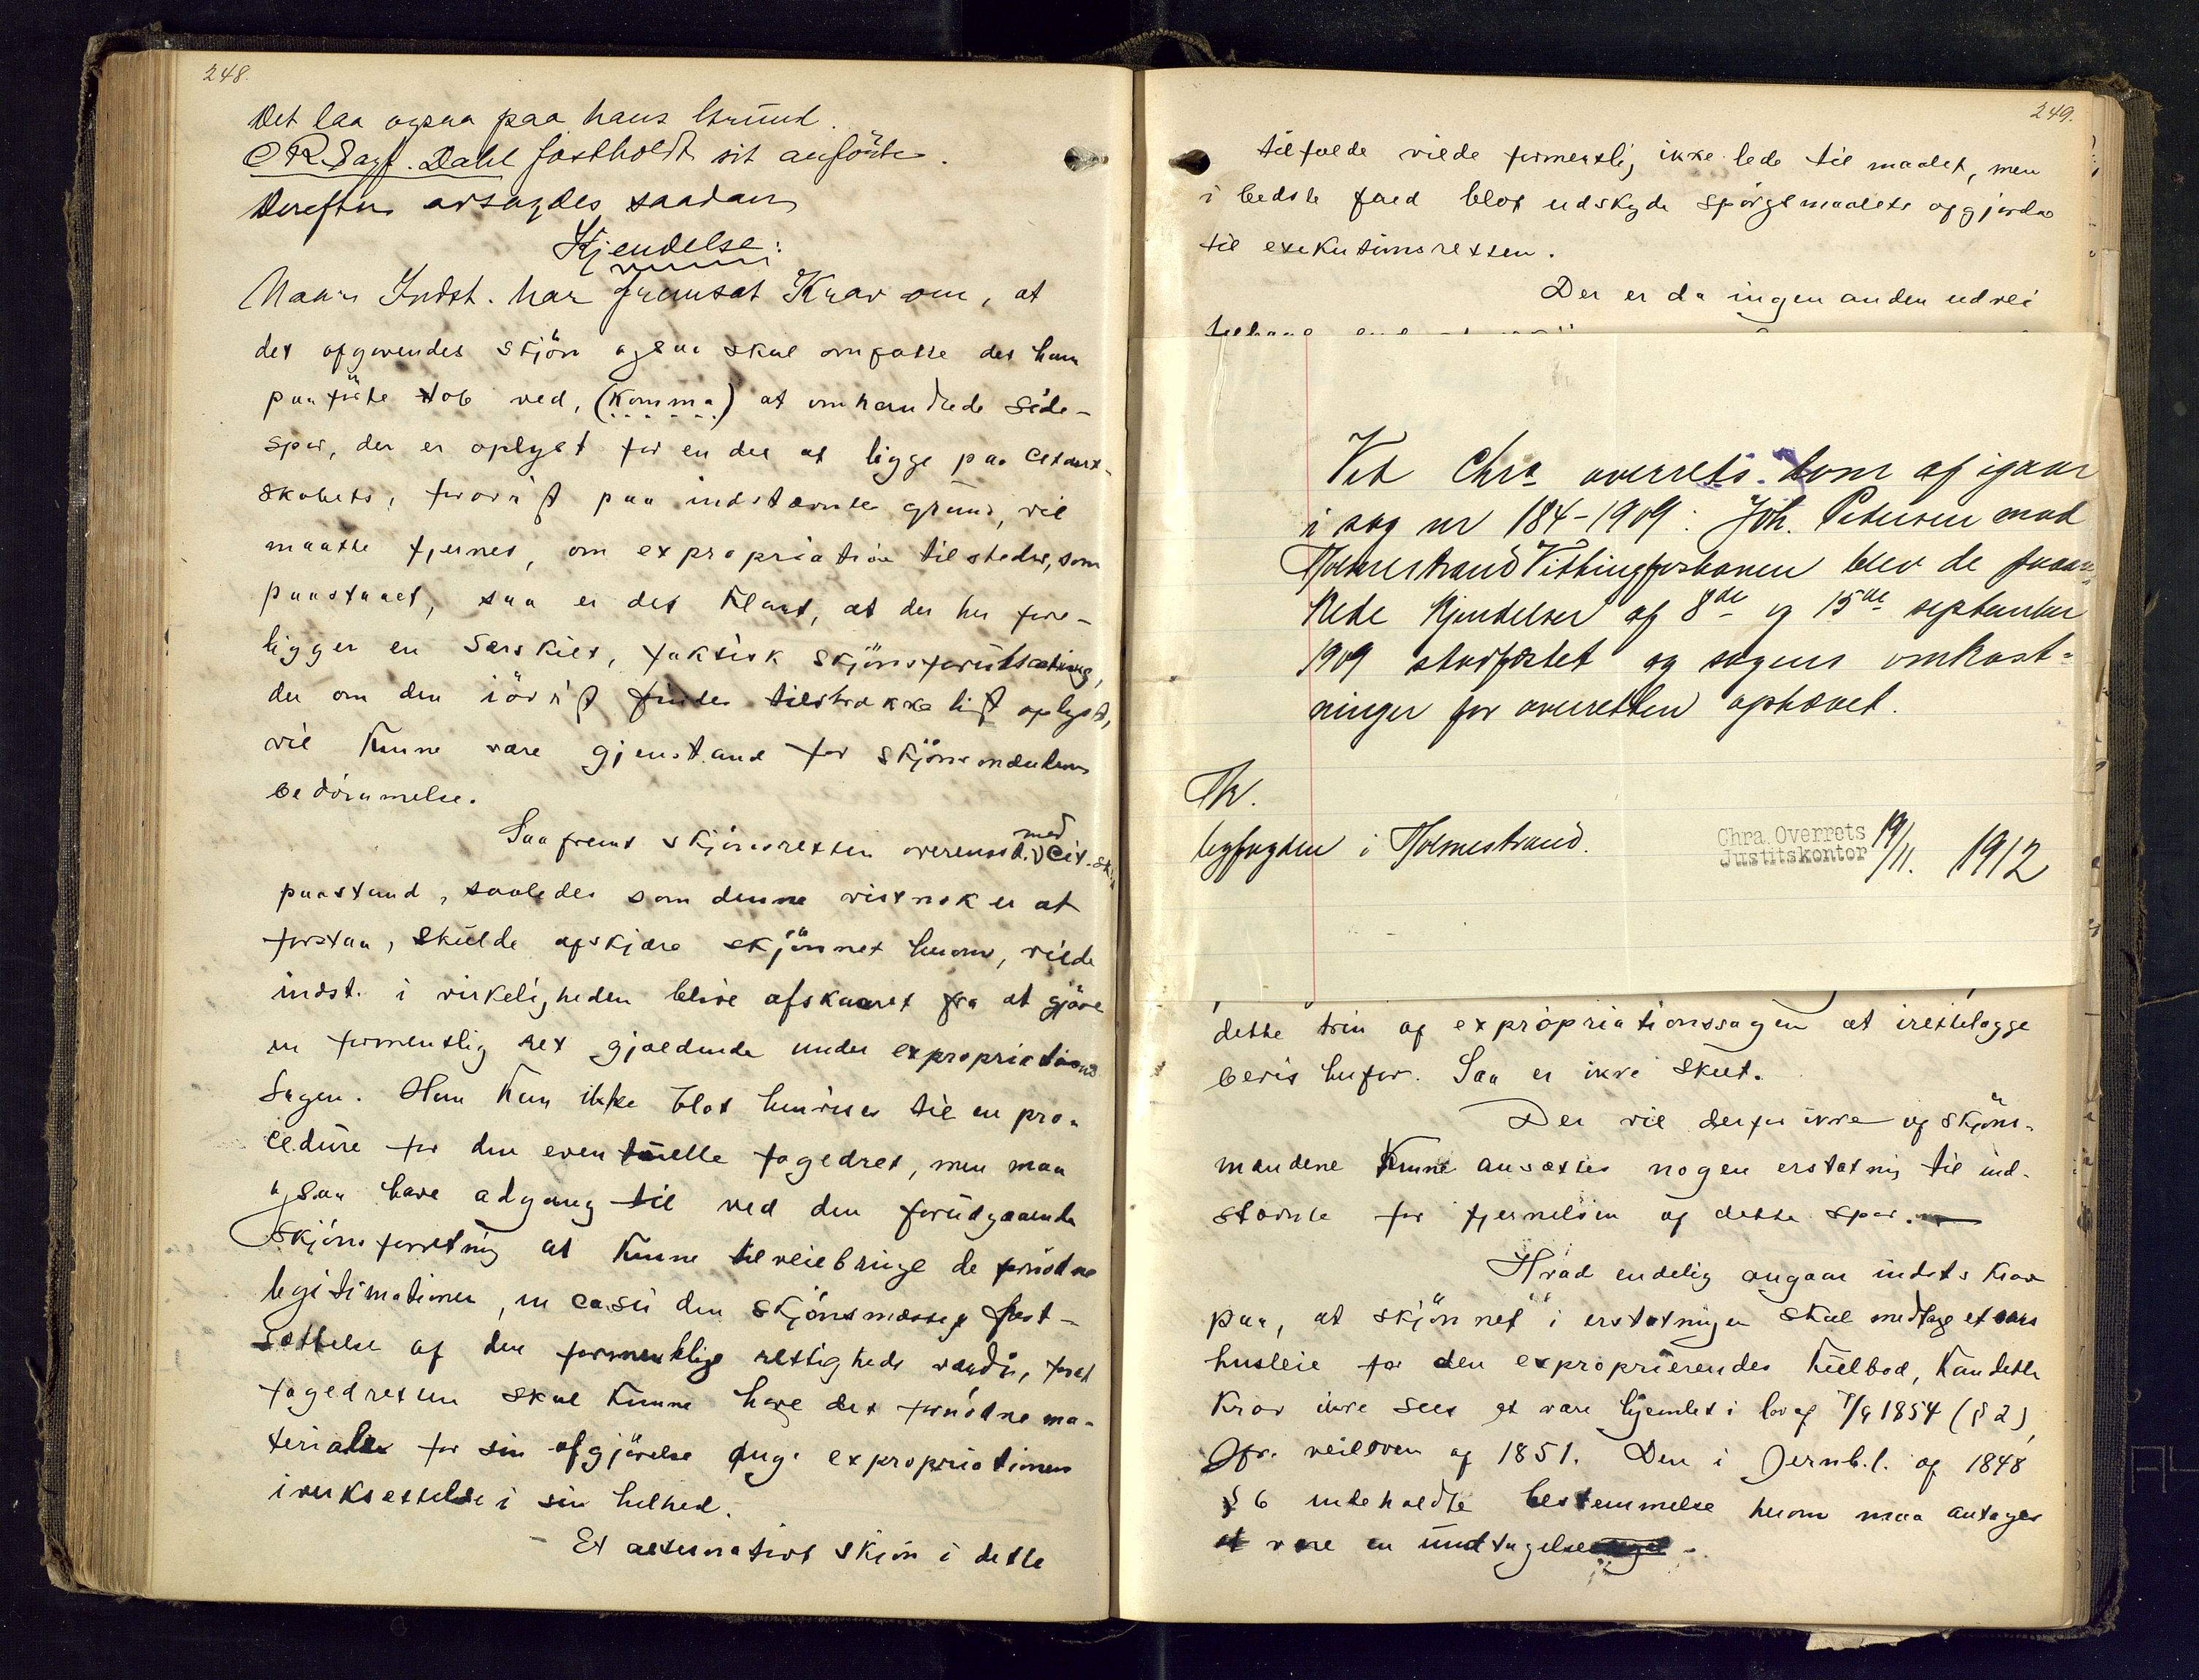 248.
Det laa ogsaa paa hans Grund.
O.R.Sagf. Dahl fastholdt sit anförte.
Derefter avsagdes saadan
Kjendelse:
Naar Indst. har fremsat Krav om, at
det afgivendes skjön ogsaa skal omfatte det ham
paaförte tab ved, (Komma) at omhandlede side-
spor, der er oplyst for en del at ligge paa Citant-
skabets, forövrigt paa indstævnte grund, vil
maatte fjernes, om expropriation tilstedes, som
paastaaet, saa er det klart, at der her fore-
ligger en særskilt, faktisk skjönsforudsætning,
der om den iövrigt findes tilstrækkeligt oplyst,
vil kunne være gjenstand for skjönsmændenes
bedömmelse.
Saafremt skjönsretten overensst. med Cit.sk.
paastand, saaledes som denne vistnok er at
forstaa, skulde afskjære skjönnet herom, vilde
indst. i virkeligheden blive afskaaret fra at gjöre
en formentlig ret gjældende under expropriations
sagen. Han kan ikke blot henvises til en pro-
cedure for den eventuelle fogedret, men maa
ogsaa have adgang til ved den forudgaaende
skjönsforretning at kunne tilveiebringe de fornödne
legitimationer, in casu den skjönsmæssige fast-
sættelse af den formentlige rettigheds værdi, forat
fogedretten skal kunne have det fornödne ma-
teriale for sin afgjörelse ang. expropriationens
iverksettelse i sin helhed.
- Et alternativt skjön i dette
249.
tilfælde vilde formentlig ikke lede til maalet, men
i bedste fald blot udskyde spörgsmaalets afgjörelse
til exekutionsretten.
Der er da ingen anden udvei
Ved Chra overrets dom af igaar
i sag nr 184-1909: Joh. Pedersen mod
Holmestrand Vittingfosbanen blev de paaan-
kede kjendelser af 8de og 15de september
1909 stadfæstet og sagens omkost-
ninger for overretten ophævet.
Th.
byfogden i Holmestrand.
Chra. Overrets
Justitskontor 19/11. 1912
dette trin af expropriationssagen at irettelægge
bevis herfor. Saa er ikke skeet.
Der vil derfor ikke af skjöns-
mændene kunne ansættes nogen erstatning til ind-
stævnte for fjernelsen af dette spor.
Hvad endelig angaar indsts krav
paa, at skjönnet i erstatningen skal medtage et aars
husleie for den exproprierendes kulbod, kan dette
krav ikke sees at være hjemlet i lov af 7/9 1854 (§ 2),
Jfr. veiloven af 1851. Den i Jernb.l. af 1848
§ 6 indeholdte bestemmelse herom maa antages
at være en undtagelse